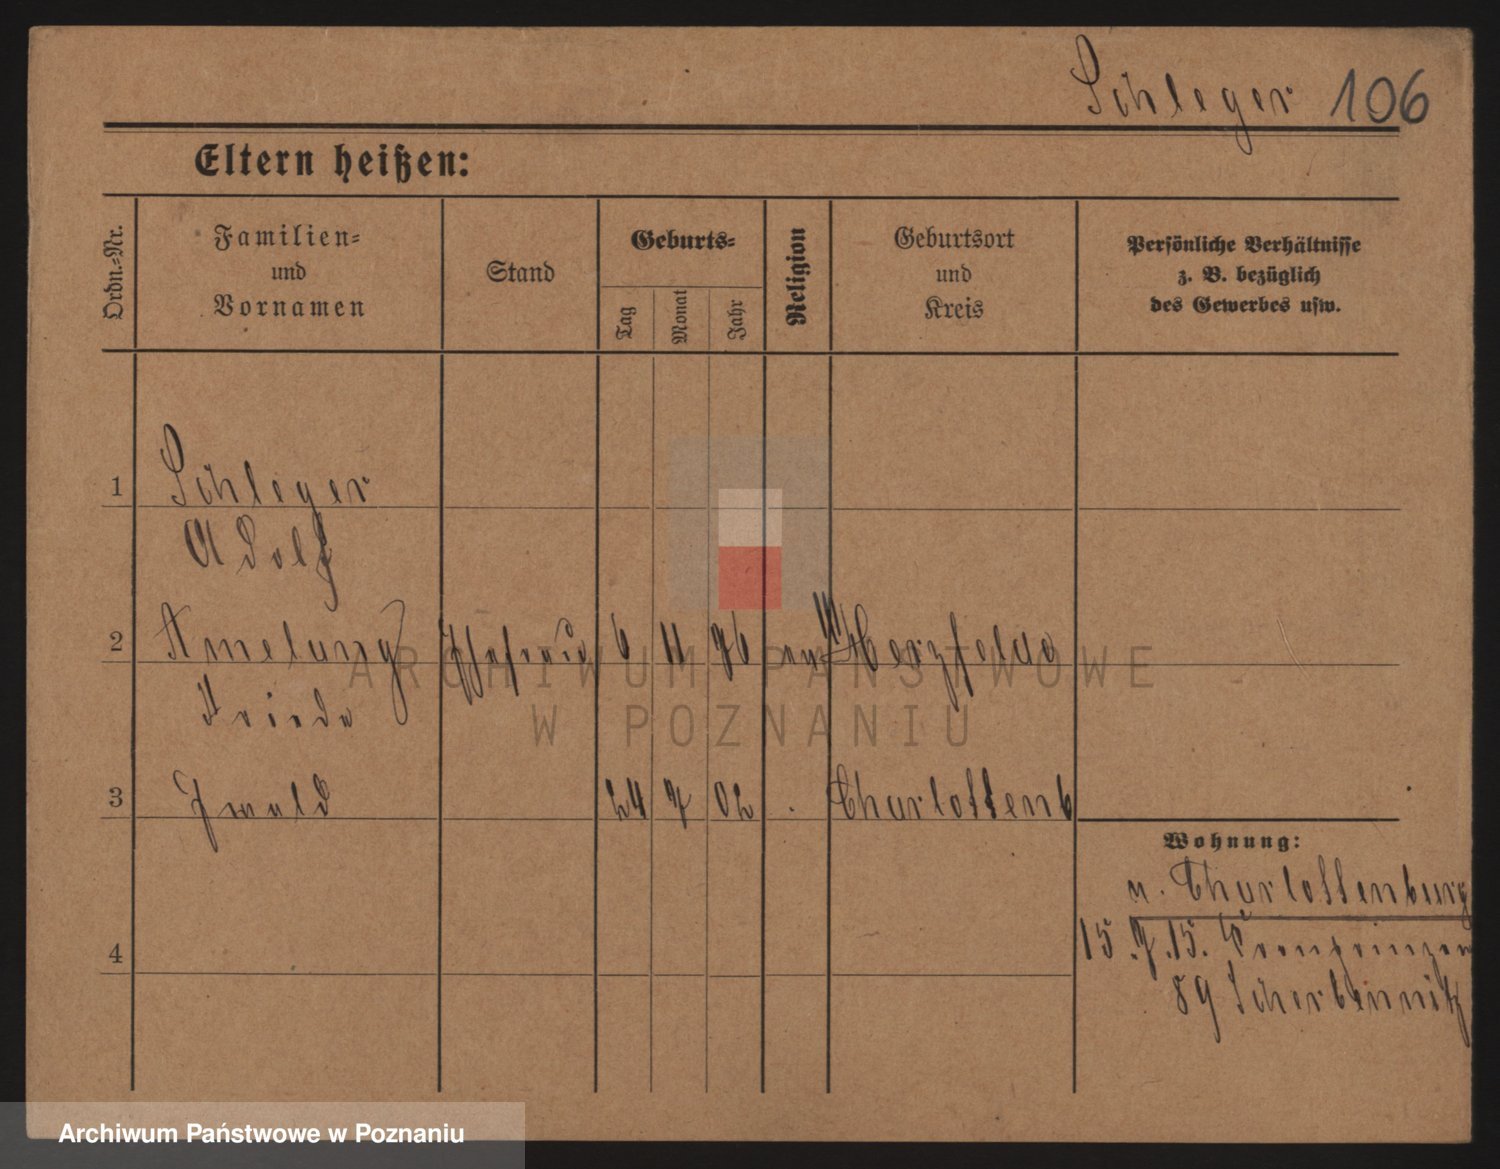 Schleger 106
Eltern heißen:
Ordn.-Nr.
Familien-
und
Vornamen
Stand
Geburts-
Tag
Monat
Jahr
Religion
Geburtsort
und
Kreis
Persönliche Verhältnisse
z. B. bezüglich
des Gewerbes usw.
1 Schleger
Adolf
2 Amelung Ehefrau 6 11 76 ev Herzfelde
Frieda
3 Ewald 24 7 02 Charlottenb
Wohnung:
n. Charlottenburg
15.7.15. Kronprinzen
89 Scherbennitz
4
ARCHIWUM PAŃSTWOWE
W POZNANIU
Archiwum Państwowe w Poznaniu